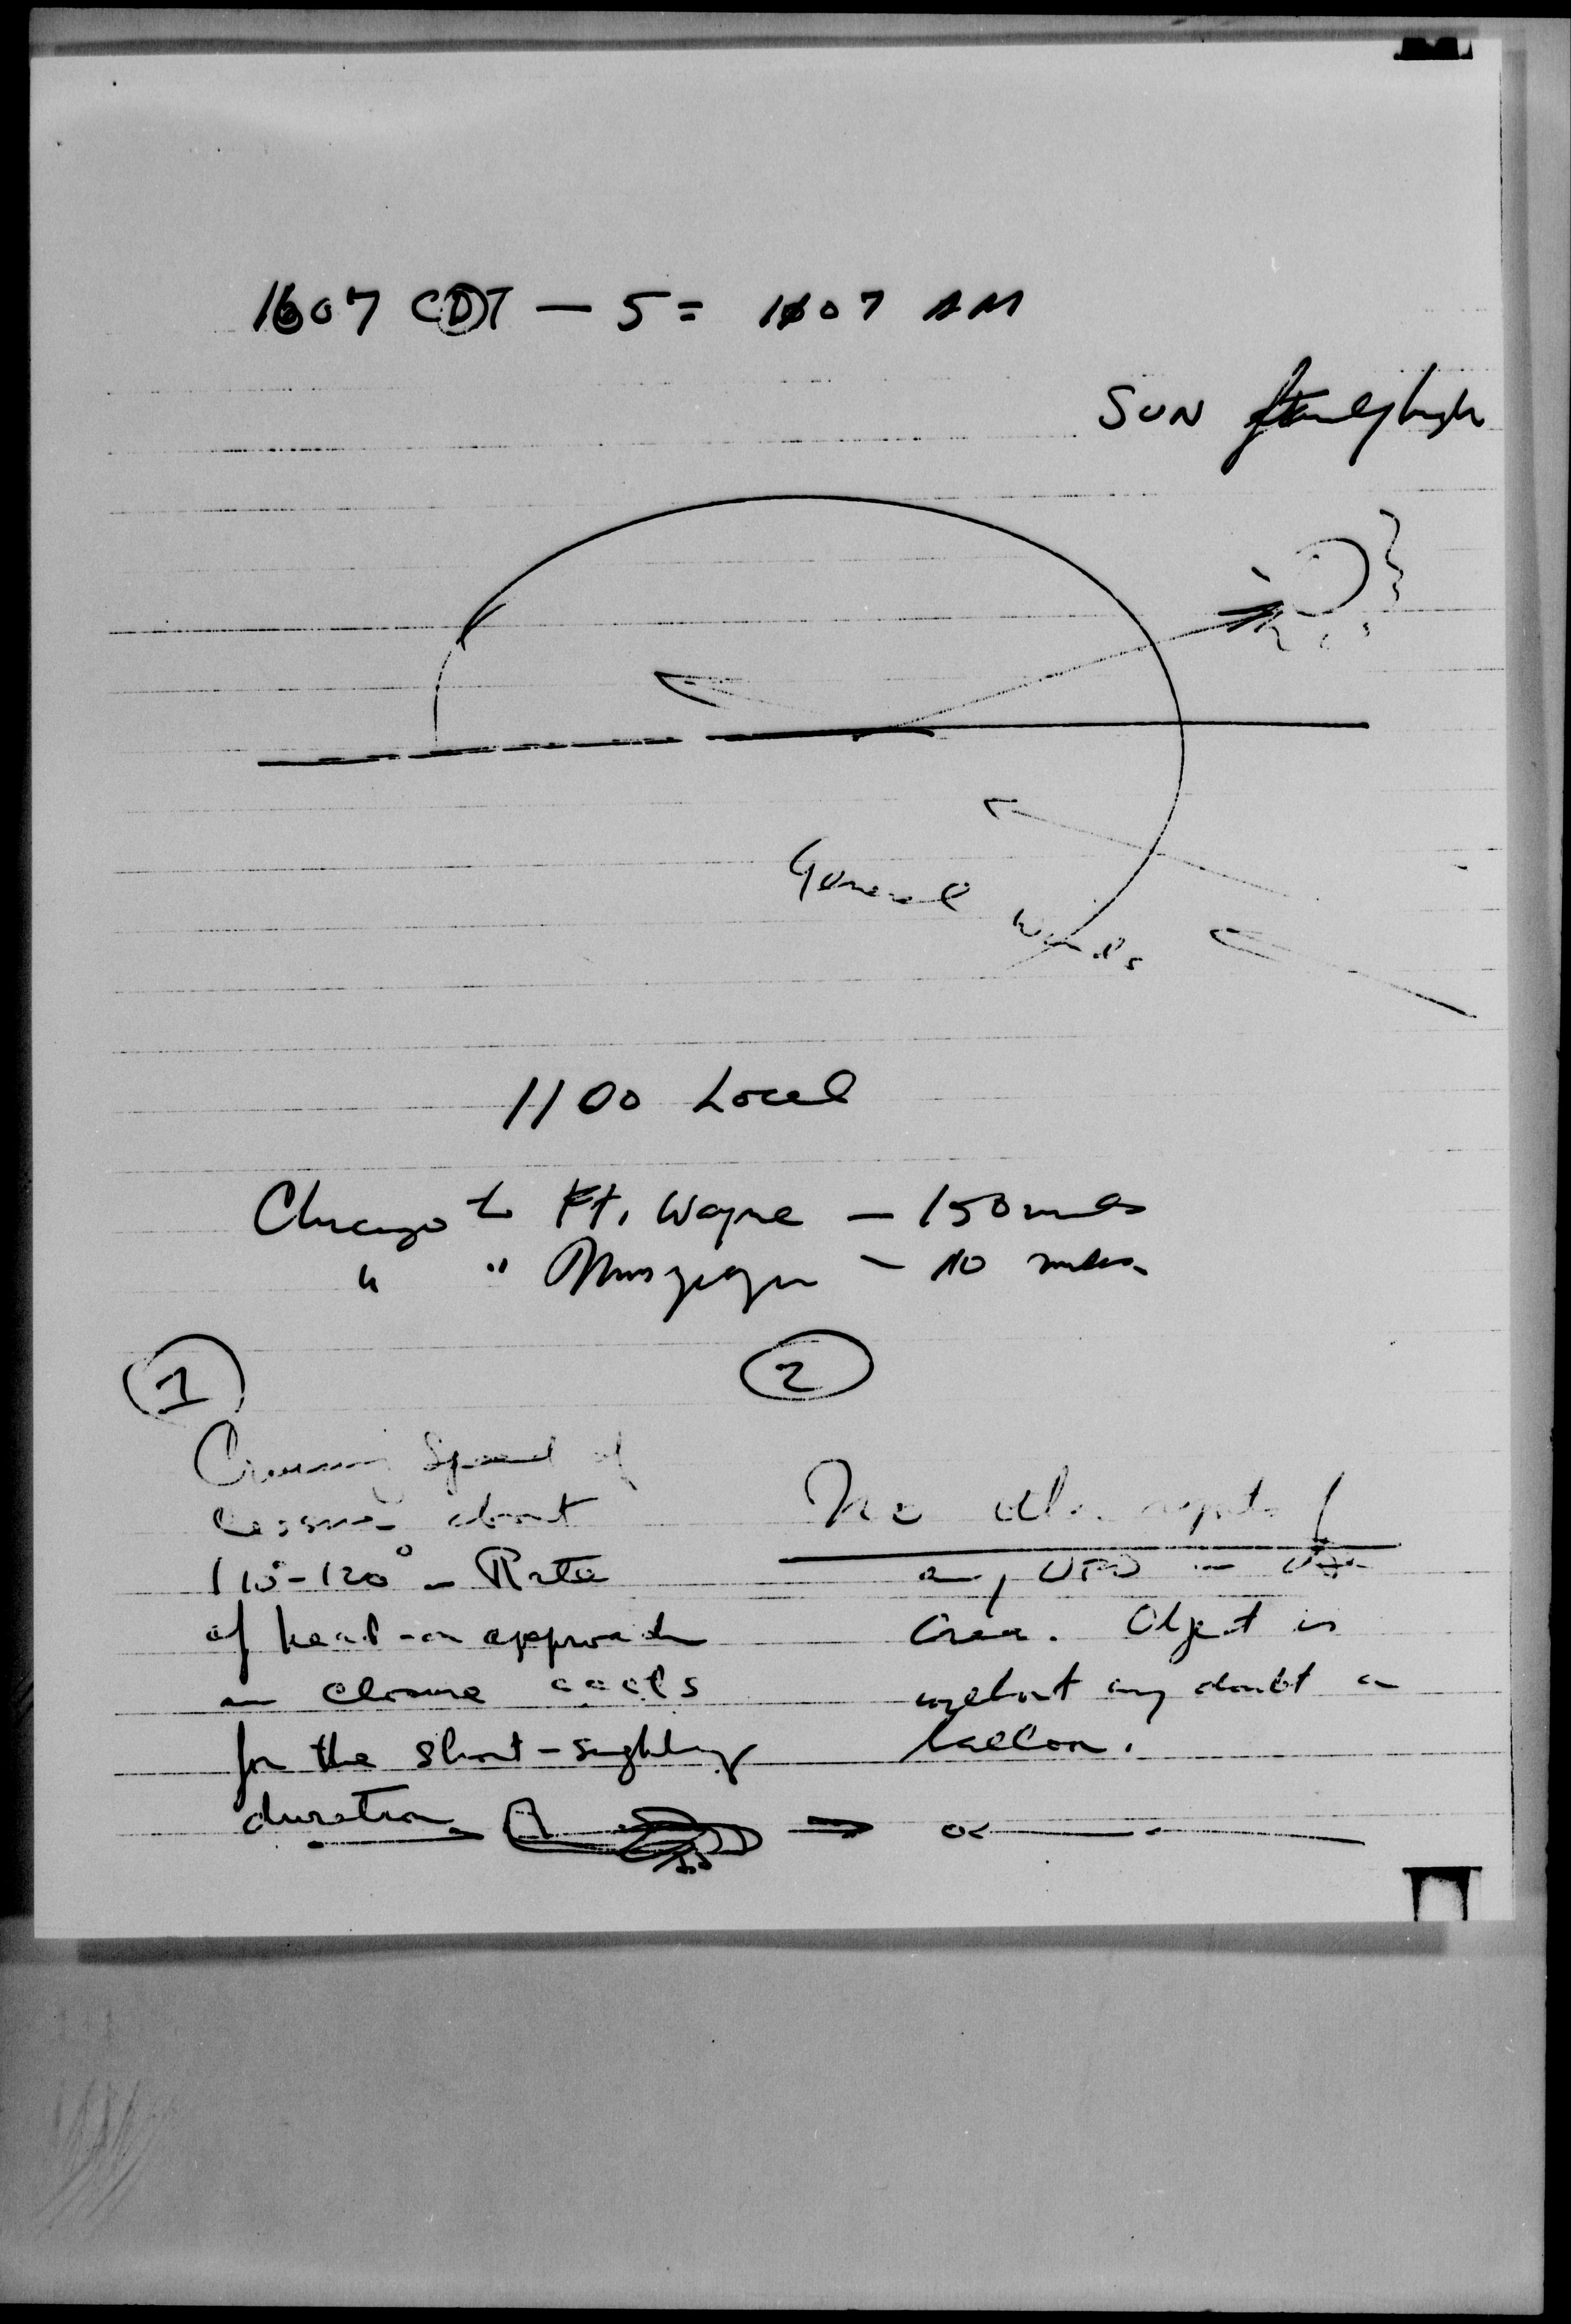 1607 CDT — 5 = 1107 AM
SUN fairly high
General Winds
1100 Local
Chicago to Ft. Wayne — 150 miles
" " — 110 miles
1
Cruising Speed of
Cessna about
110-120° — Rate
of head-on approach
closure accts
for the short-sighting
duration
2
No other reports of
any UFO in
area. Object is
without any doubt a
balloon.